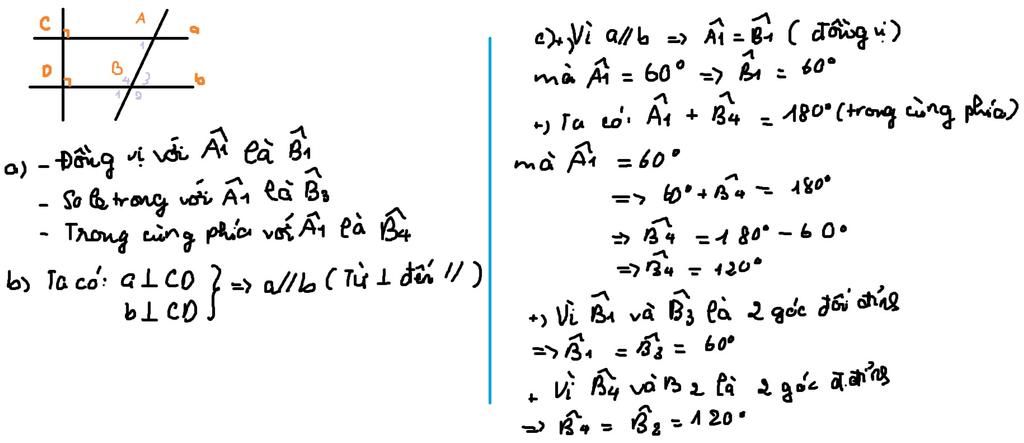 C A a
1
D B b
4 3
1 2
a) - Đồng vị với Â1 là B̂1
- So le trong với Â1 là B̂3
- Trong cùng phía với Â1 là B̂4
b) Ta có: a ⊥ CD } => a//b (Từ ⊥ đến //)
b ⊥ CD
c) +, Vì a//b => Â1 = B̂1 (đồng vị)
mà Â1 = 60° => B̂1 = 60°
+, Ta có: Â1 + B̂4 = 180° (trong cùng phía)
mà Â1 = 60°
=> 60° + B̂4 = 180°
=> B̂4 = 180° - 60°
=> B̂4 = 120°
+, Vì B̂1 và B̂3 là 2 góc đối đỉnh
=> B̂1 = B̂3 = 60°
+ Vì B̂4 và B2 là 2 góc đ.đỉnh
=> B̂4 = B̂2 = 120°